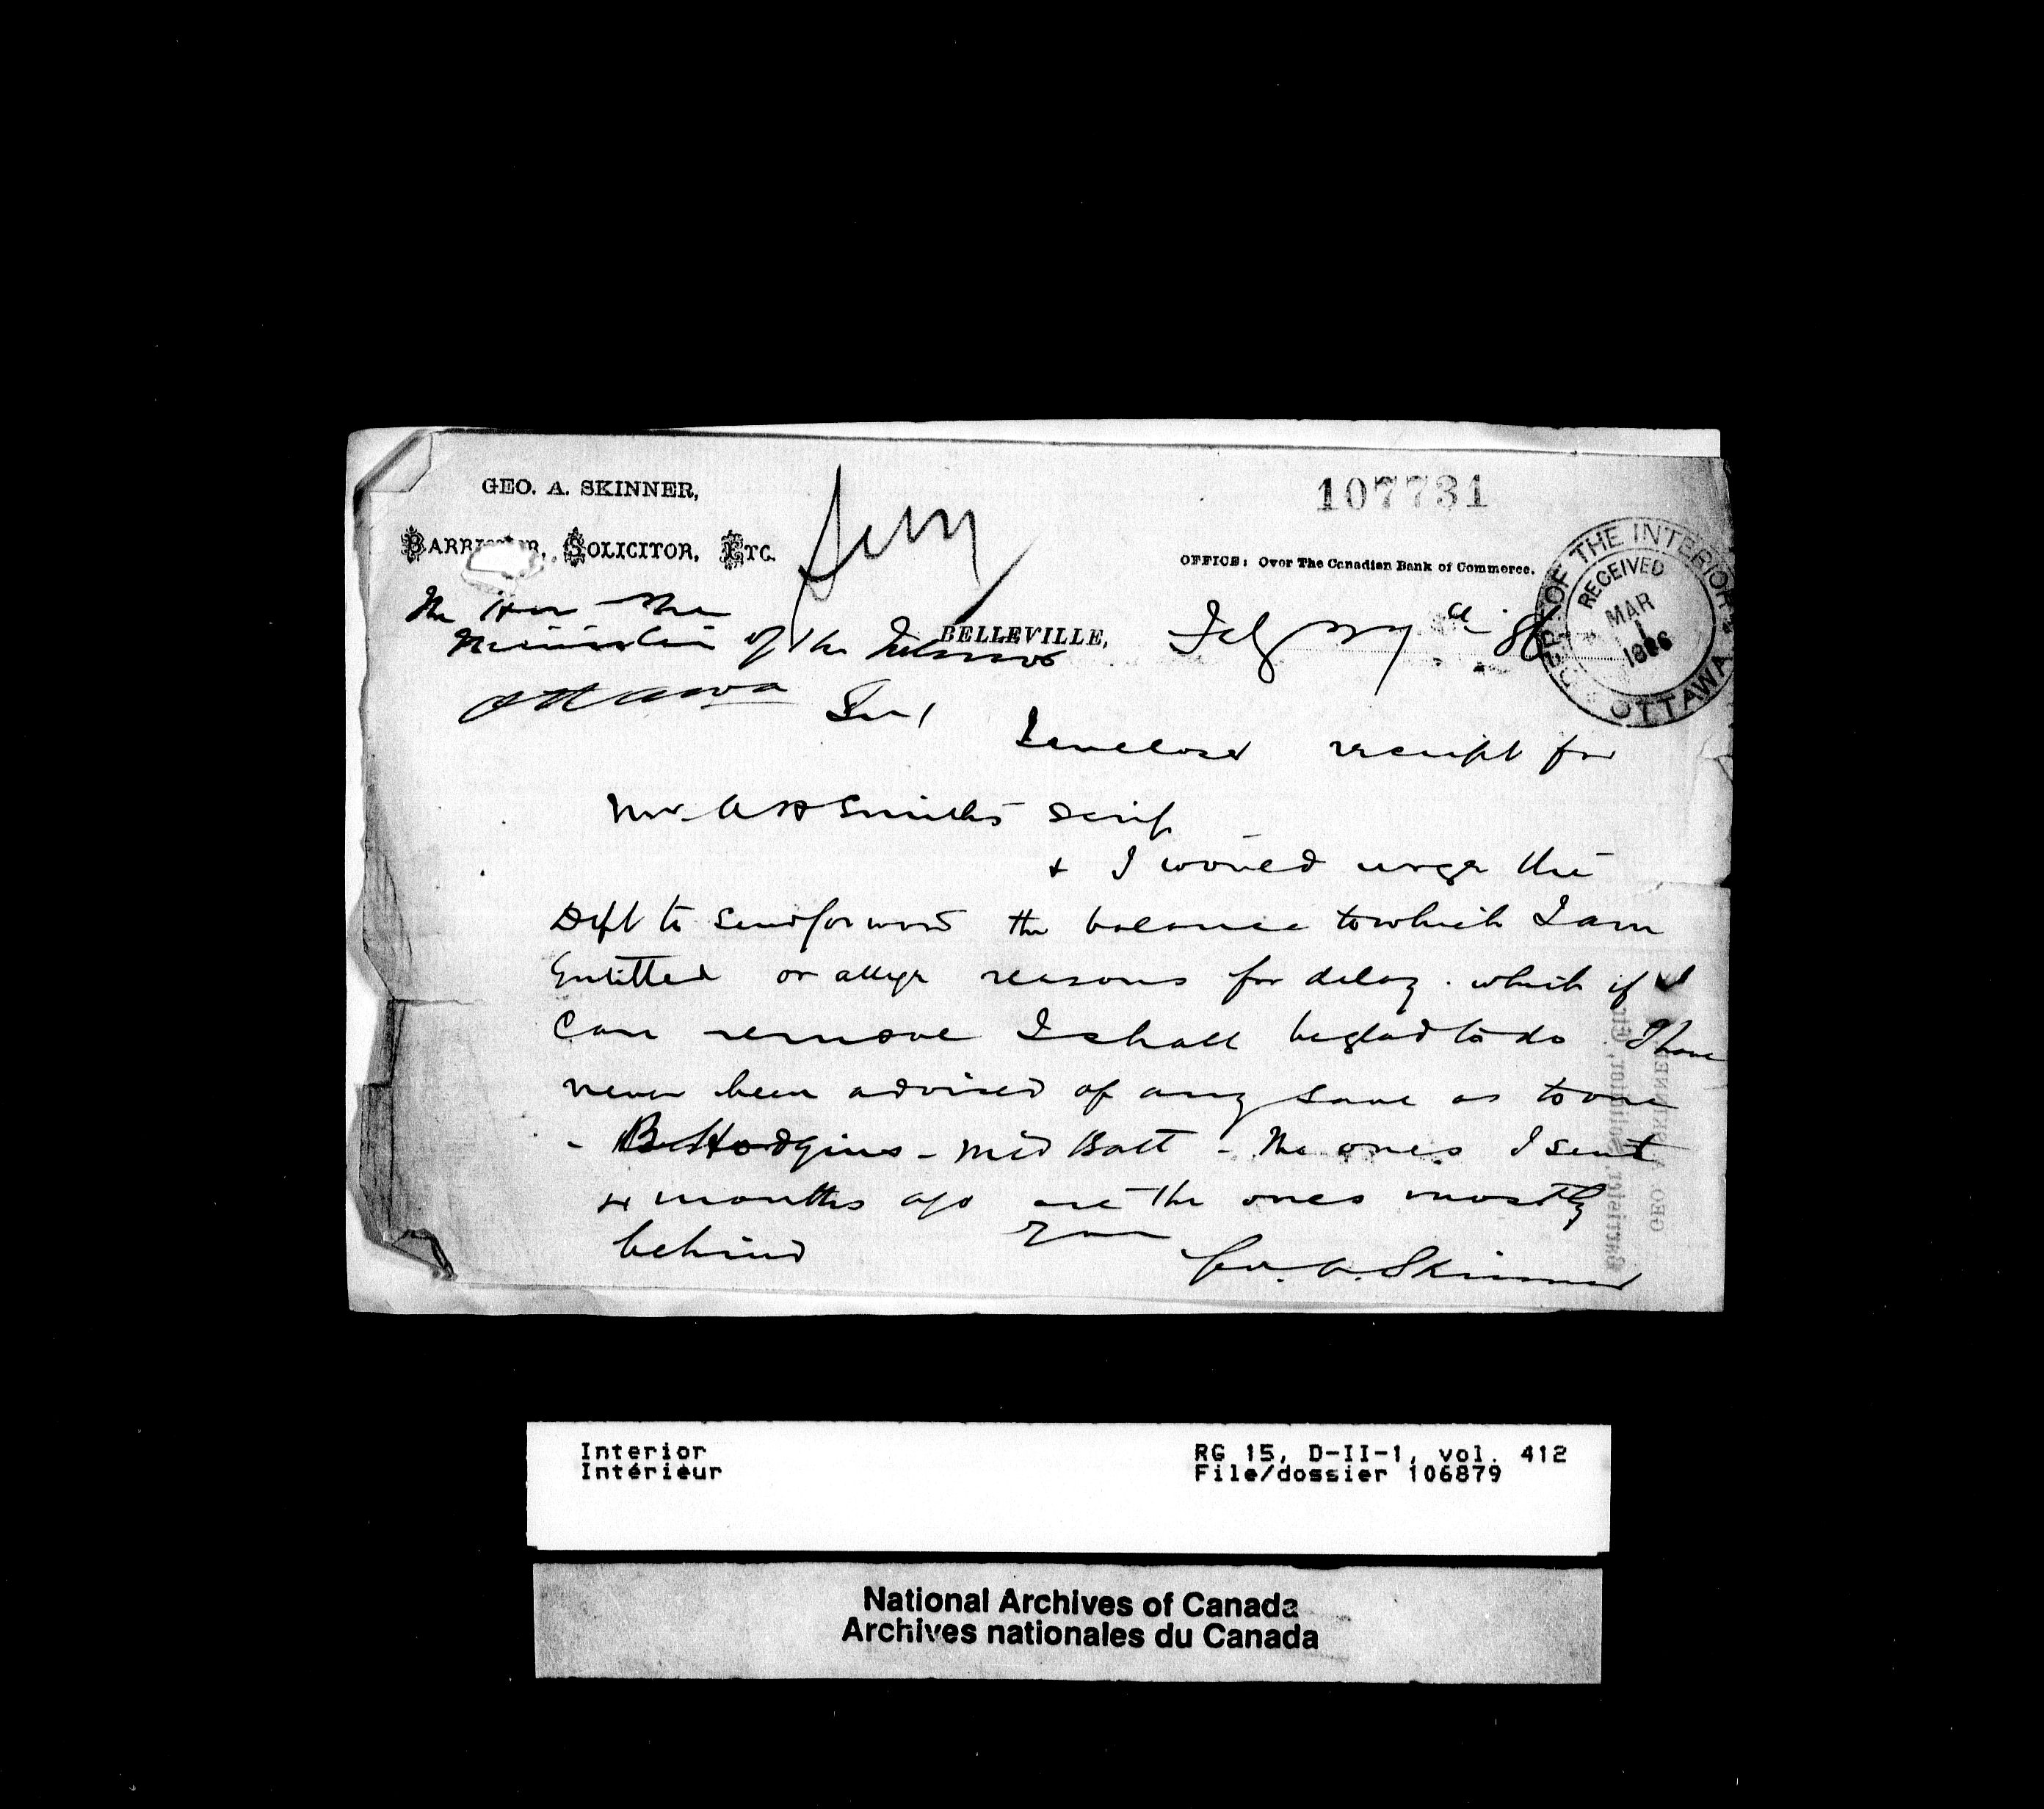 GEO. A. SKINNER,
107731
BARRISTER, SOLICITOR, ETC.
OFFICE: Over The Canadian Bank of Commerce.
DEP. OF THE INTERIOR
RECEIVED
MAR
1
1886
OTTAWA
The Hon The
Minister of the Interior
BELLEVILLE, Feby 27th 86
Ottawa
Sir/
I enclosed receipt for
Mr A H Smiths Scrip
+ I would urge the
Dept to send forward the balance to which I am
Entitled or allege reasons for delay. which if I
Can remove I shall be glad to do. I have
never been advised of any save as to one
- B Hodgins - Mid Batt - The ones I sent
4 months ago are the ones mostly
behind
Geo. A. Skinner
Barrister, Solicitor, Etc.
GEO. A. SKINNER
Interior
Intérieur
RG 15, D-II-1, vol. 412
File/dossier 106879
National Archives of Canada
Archives nationales du Canada